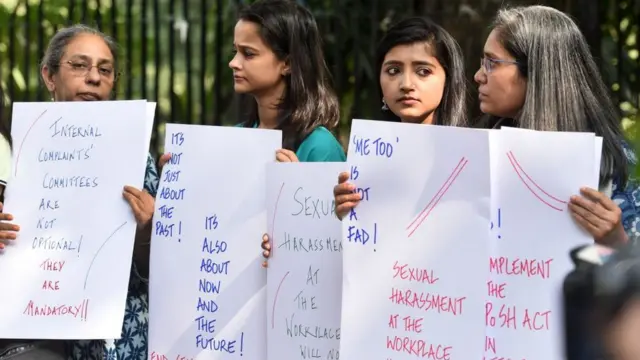 INTERNAL
COMPLAINTS'
COMMITTEES
ARE
NOT
OPTIONAL!
THEY
ARE
MANDATORY!!
ITS
NOT
JUST
ABOUT
THE
PAST!
ITS
ALSO
ABOUT
NOW
AND
THE
FUTURE!
SEXU
HARASSMENT
AT
THE
WORKPLACE
WILL NO
'ME TOO'
IS
NOT
A
FAD!
SEXUAL
HARASSMENT
AT THE
WORKPLACE
!
MPLEMENT
THE
PoSH ACT
IN